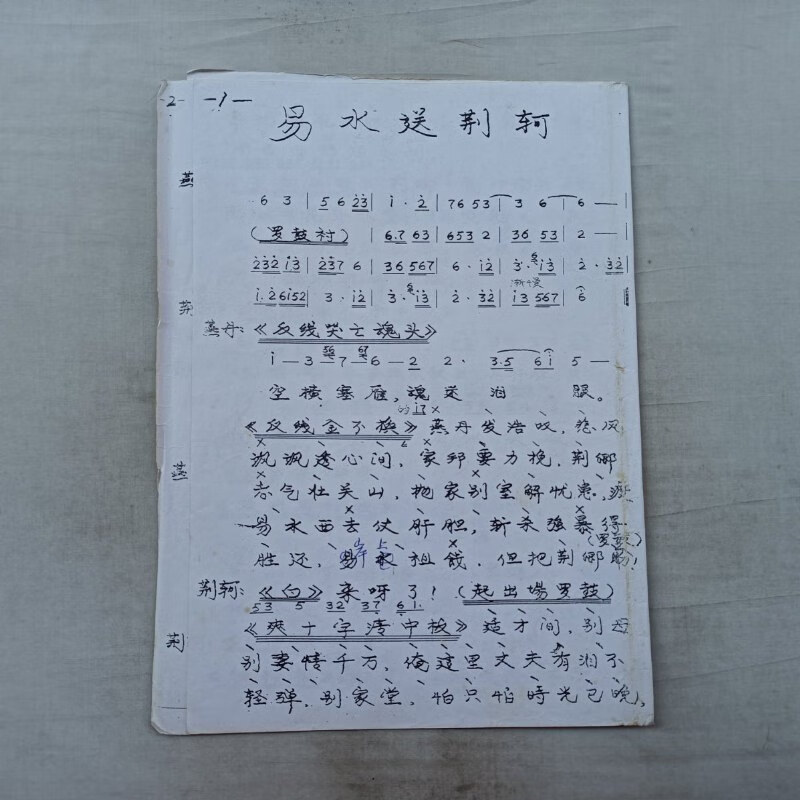 -2- -1-
易水送荆轲
6 3 | 5 6 2̇3̇ | 1̇ · 2̇ | 76 53 | 3 6 | 6 — |
(罗鼓衬) | 6.7 63 | 653 2 | 36 53 | 2 — |
2̇3̇2̇ 1̇3̇ | 2̇3̇7 6 | 36 567 | 6 · 1̇2̇ | 3̇ · 1̇3̇ | 2̇ · 3̇2̇ |
渐慢
1̇.2̇ 6152 | 3 · 1̇2̇ | 3̇ · 1̇3̇ | 2̇ · 3̇2̇ | 1̇3̇ 567 | 6
燕丹:《反线哭亡魂头》
1̇ — 3 — 7 — 6 — 2 2 · 3.5 61̇ 5 —
空横塞雁,魂送泪眼。
《反线金不换》燕丹发浩叹,悲风
飒飒透心间,家邦要力挽,荆卿
志气壮关山,抛家别室解忧患,
易水西去仗肝胆,斩杀强暴得
(罗鼓)
胜还,易水祖饯,但把荆卿盼!
岸上
荆轲:《白》来呀了!(起出場罗鼓)
53 5 32 37 61.
《爽十字清中板》适才间,别
别妻情千万,俺这里丈夫有泪不
轻弹,别家堂,怕只怕時光已晚,
燕
荆
燕
荆